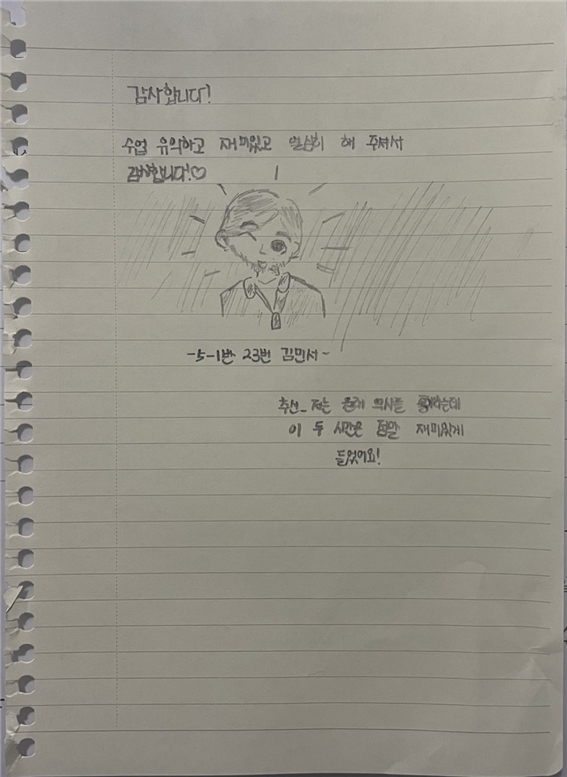 감사합니다!
수업 유익하고 재미있고 열심히 해 주셔서
감사합니다!♡
-5-1반 23번 김민서-
추신_ 저는 원래 역사를 싫어하는데
이 두 시간은 정말 재미있게
들었어요!